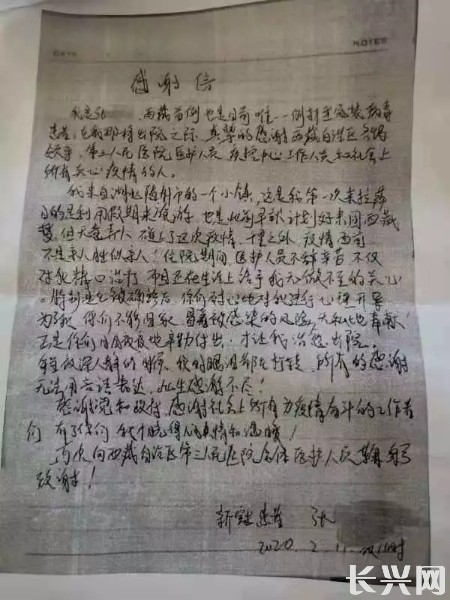 DATE NOTES
感谢信
我是张 西藏首例也是目前唯一一例新型冠状病毒
患者,在我即将出院之际,真挚的感谢西藏自治区各级
领导、第三人民医院医护人员 疾控中心工作人员和社会上
所有关心疫情的人。
我来自湖北随州市的一个小镇,这是我第一次来拉萨
目的是利用假期来旅游 也是此前早就计划好来圆西藏
梦,但天意弄人 碰上了这次疫情,千里之外 疫情面前
不是亲人胜似亲人!住院期间 医护人员不辞辛苦 不仅
对我精心治疗 而且还在生活上给予我无微不至的关心
。得知自己被确诊后,你们耐心地对我进行心理开导
为了我 你们不能回家 冒着被感染的风险,大私地奉献!
正是你们日日夜夜地辛勤付出,才让我治愈出院。
每当夜深人静的时候 我的眼泪都在打转,所有的感谢
无法用言语表达,此生感谢不尽!
感谢党和政府,感谢社会上所有为疫情奋斗的工作者
们 有了你们 我才觉得人间真情和温暖!
再次向西藏自治区第三人民医院全体医护人员 鞠躬
致谢!
新冠患者 张
2020.2.11
长兴网